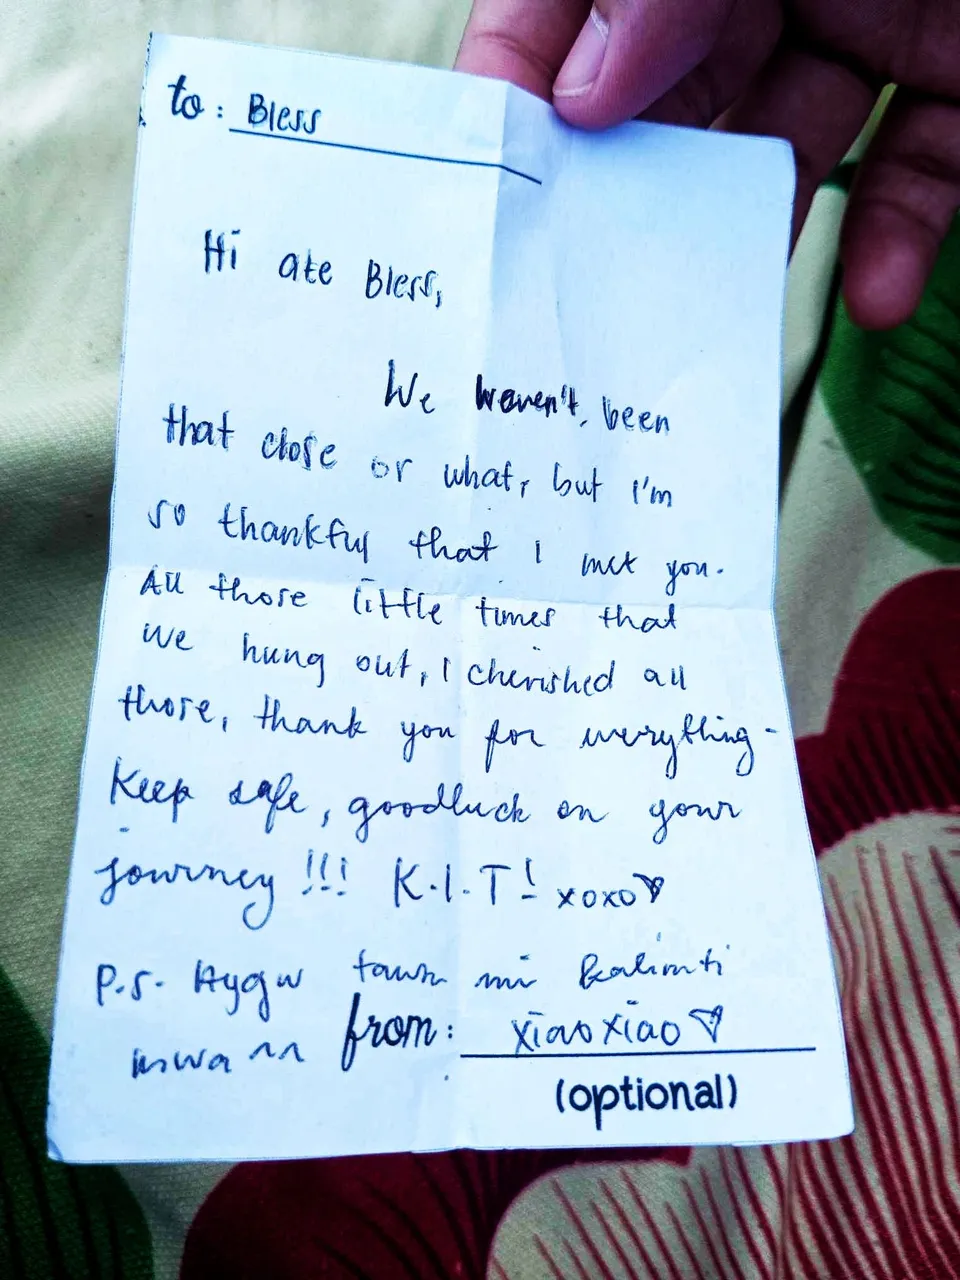 to: Bless
Hi ate Bless,
We weren't, been
that close or what, but I'm
so thankful that I met you.
All those little times that
we hung out, I cherished all
those, thank you for everything.
Keep safe, goodluck on your
journey !!! K.I.T! xoxo♡
P.S. Aygw mi
from: xiao xiao ♡
(optional)